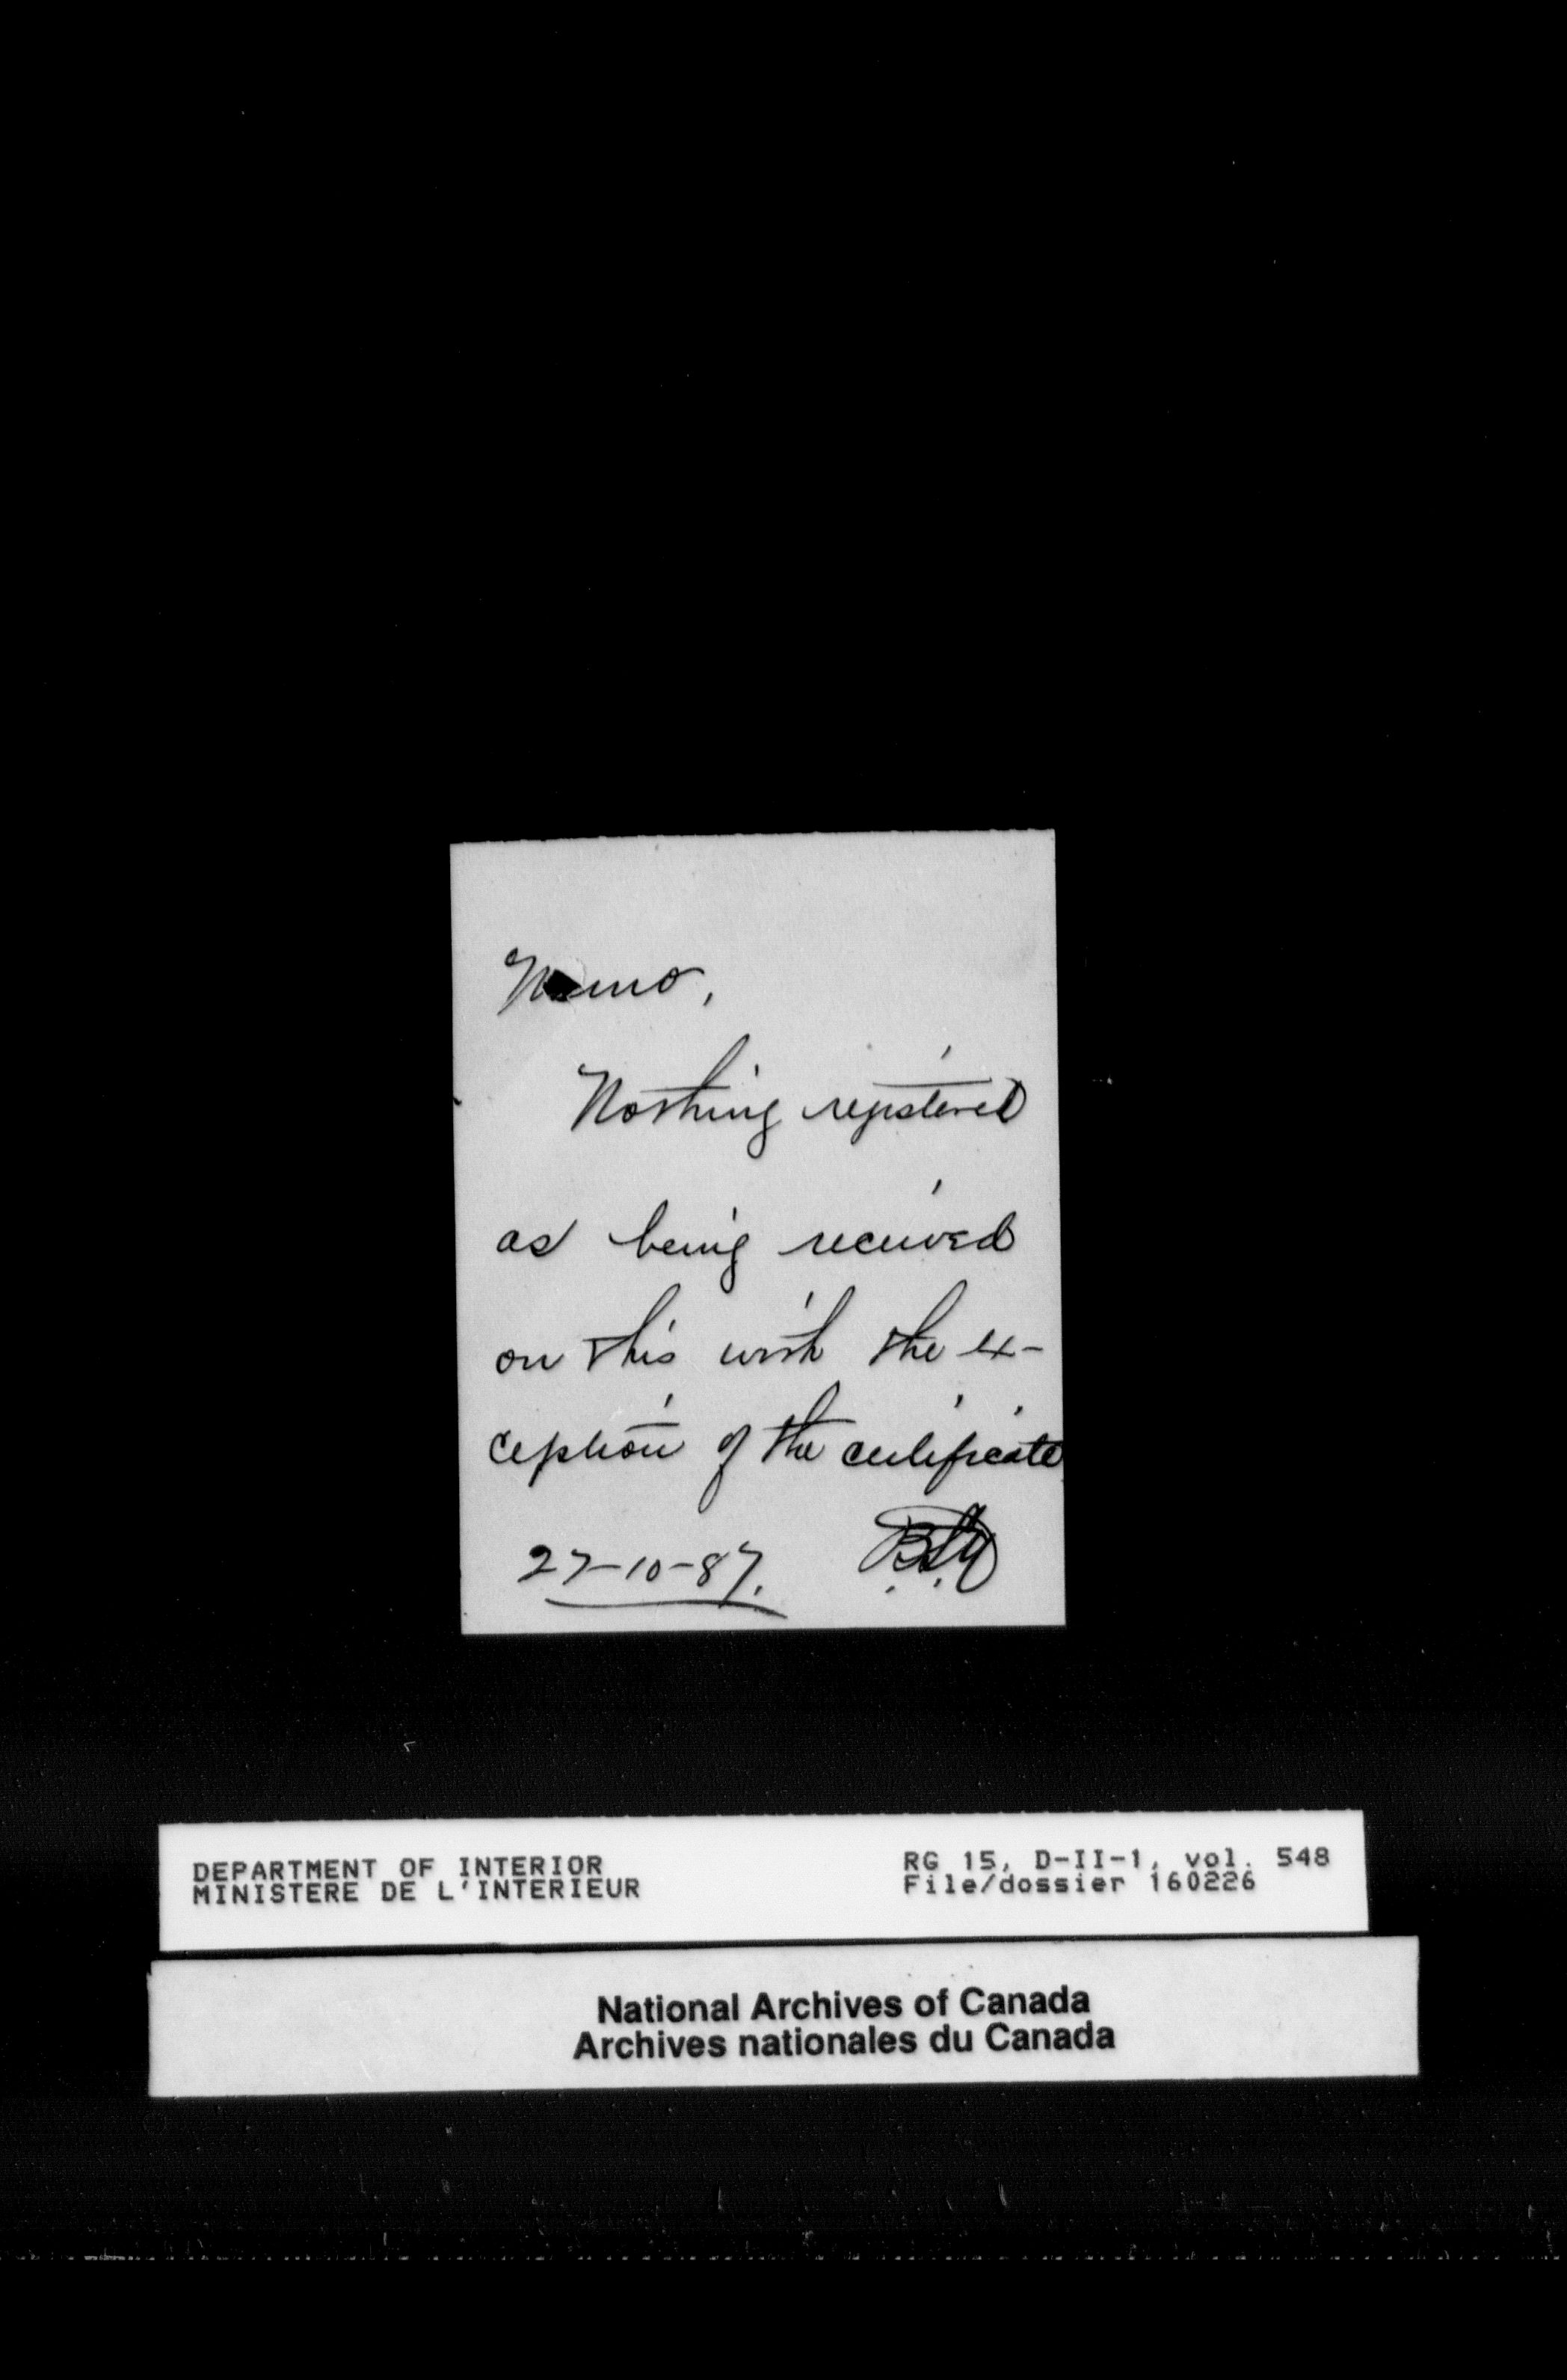 Memo,
Nothing registered
as being received
on this with the ex-
ception of the certificate
27-10-87.
DEPARTMENT OF INTERIOR
MINISTERE DE L'INTERIEUR
RG 15, D-II-1, vol. 548
File/dossier 160226
National Archives of Canada
Archives nationales du Canada